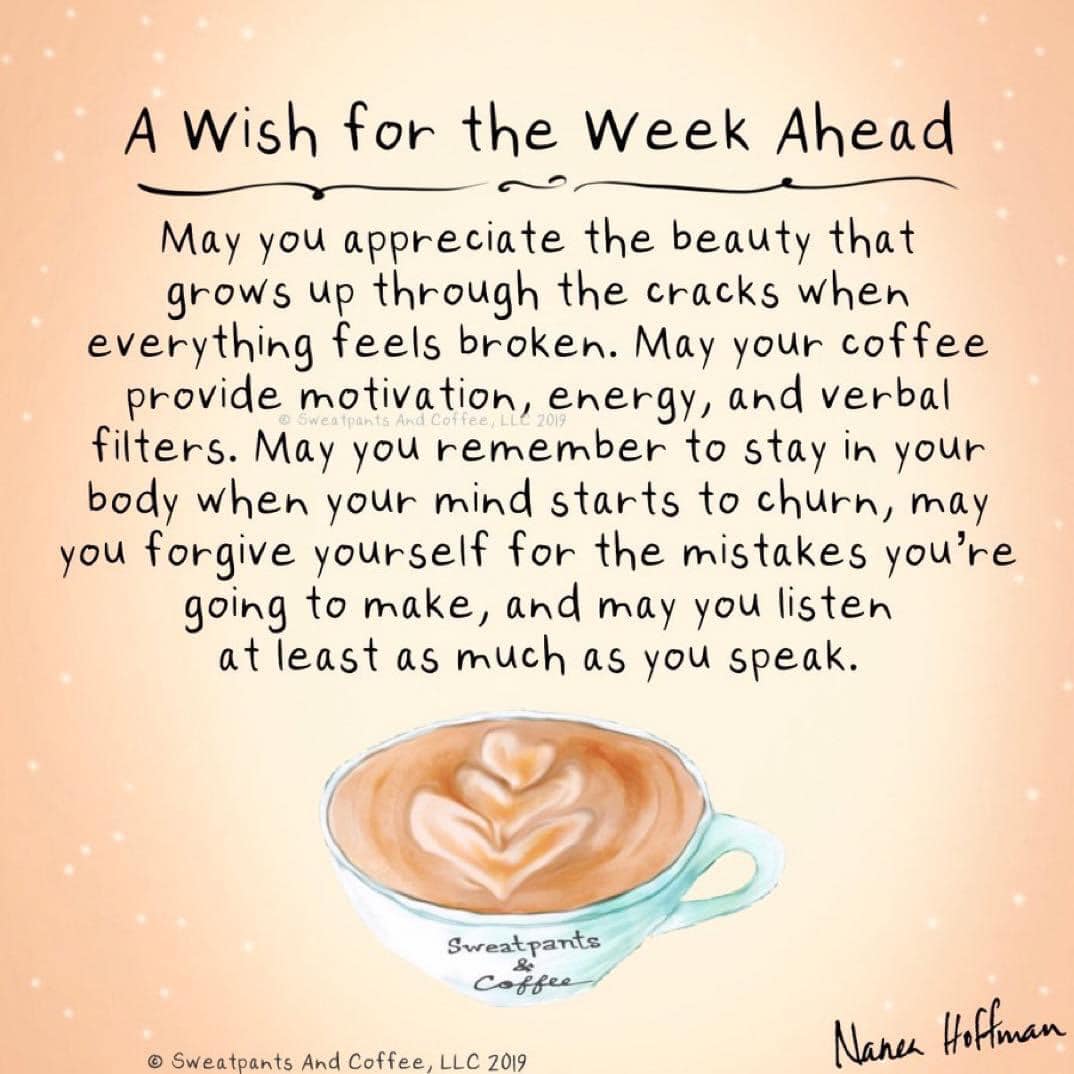 A Wish for the Week Ahead
May you appreciate the beauty that
grows up through the cracks when
everything feels broken. May your coffee
provide motivation, energy, and verbal
© Sweatpants And Coffee, LLC 2019
filters. May you remember to stay in your
body when your mind starts to churn, may
you forgive yourself for the mistakes you're
going to make, and may you listen
at least as much as you speak.
Sweatpants
&
Coffee
Nanea Hoffman
© Sweatpants And Coffee, LLC 2019